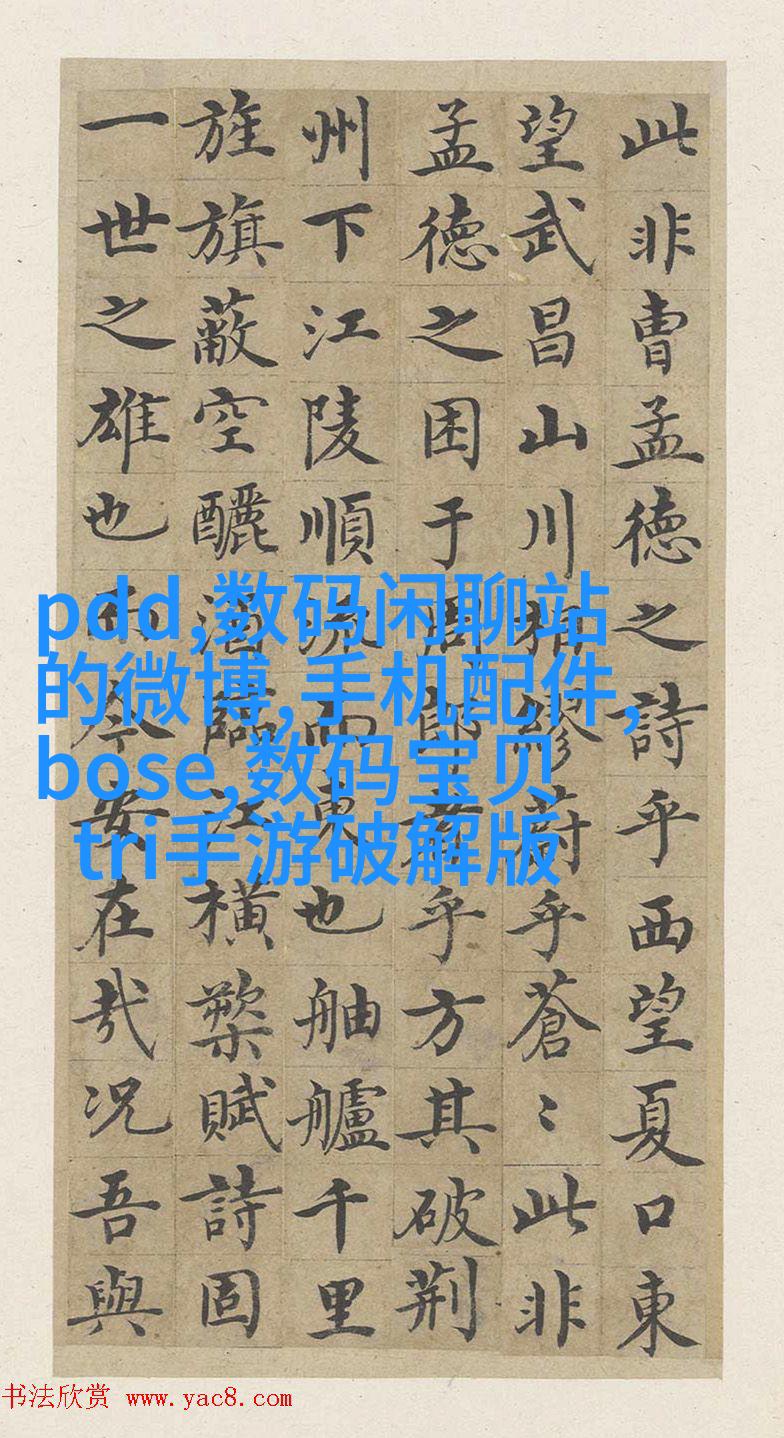 此非曹孟德之詩乎西望夏口東
望武昌山川相繆蔚乎蒼〻此非
孟德之困于周郎者乎方其破荆
州下江陵順流而東也舳艫千里
旌旗蔽空釃酒臨江横槊賦詩固
一世之雄也而今安在哉况吾與
pdd,数码闲聊站
的微博,手机配件,
bose,数码宝贝
tri手游破解版
书法欣赏 www.yac8.com